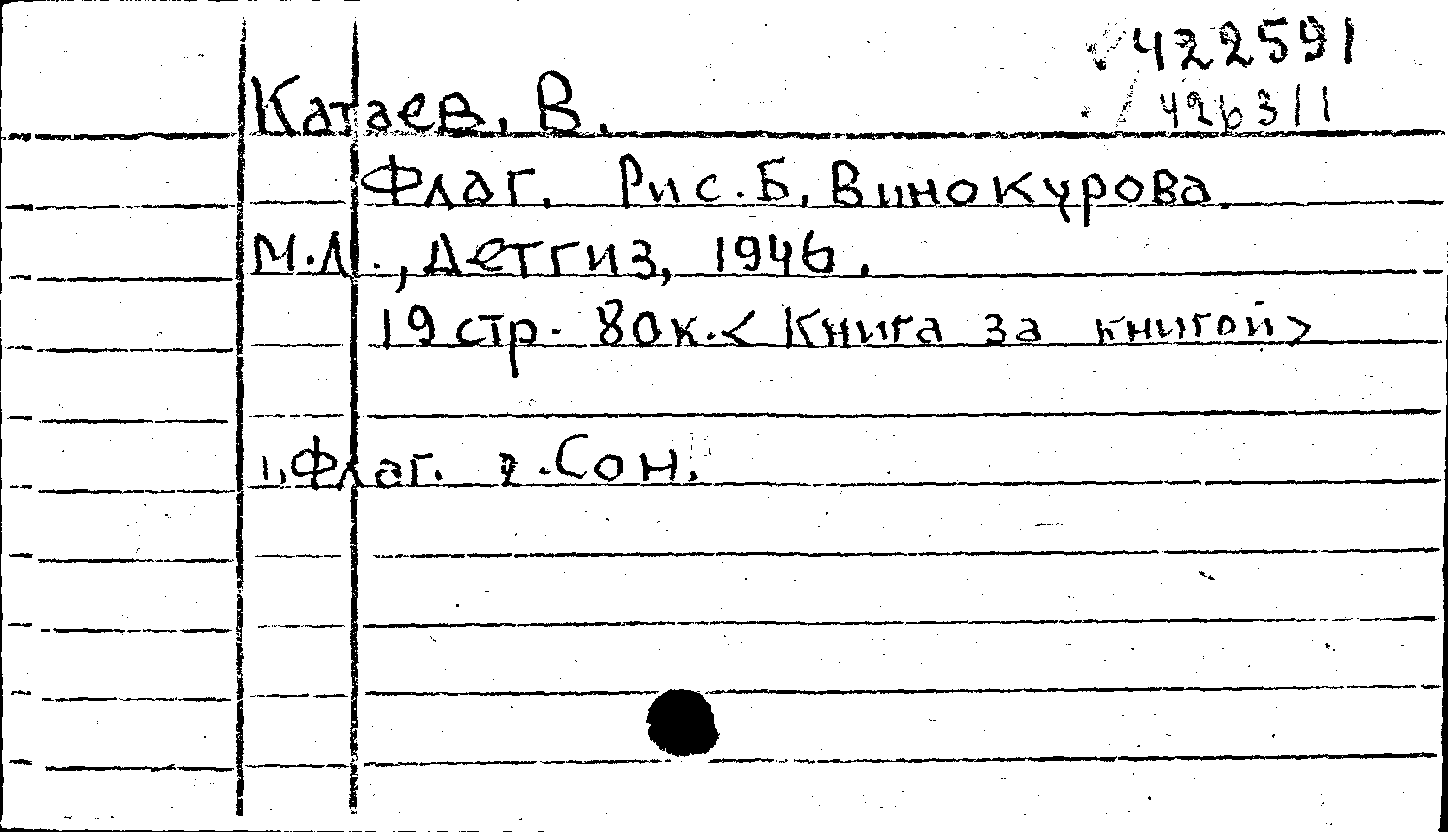 422591
426311
Катаев, В.
Флаг. Рис. Б. Винокурова.
М.Л., Детгиз, 1946.
19 стр. 80к. < Книга за книгой >
1. Флаг. 2. Сон.